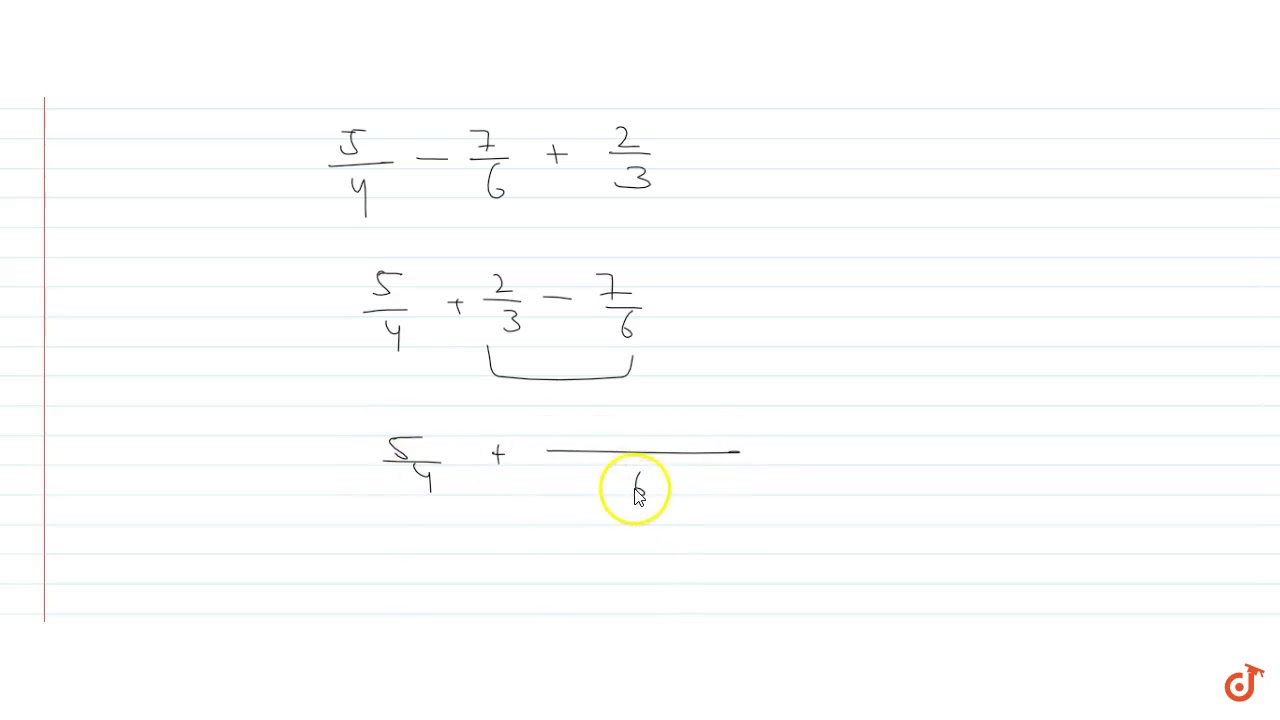 5/4 - 7/6 + 2/3
5/4 + 2/3 - 7/6
5/4 + /6